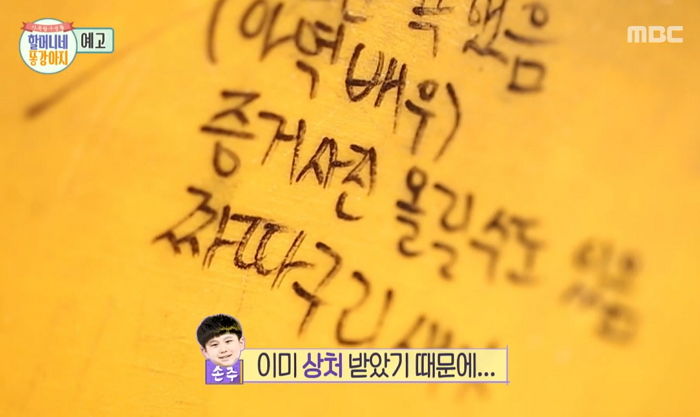 할머니네 똥강아지
예고
MBC
폭했음
(아역배우)
증거사진 올릴수도 있음
짜따구리
손주
이미 상처 받았기 때문에...